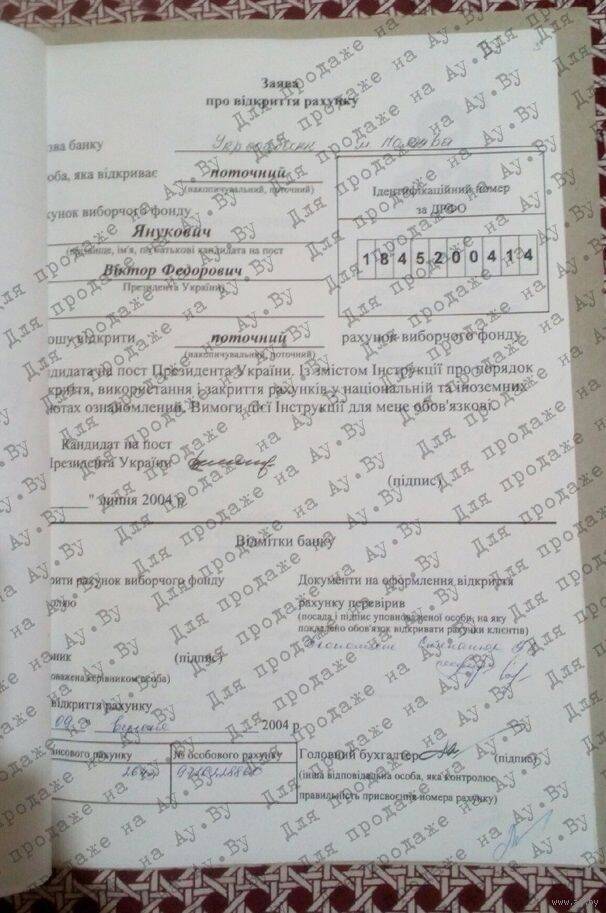 Заява
про відкриття рахунку
зва банку Укрсоцбанк м. Полтава
оба, яка відкриває поточний
(накопичувальний, поточний)
хунок виборчого фонду
Янукович
(прізвище, ім'я, по батькові кандидата на пост
Віктор Федорович
Президента України)
Ідентифікаційний номер
за ДРФО
1845200414
ошу відкрити поточний рахунок виборчого фонду
(накопичувальний, поточний)
ндидата на пост Президента України. Із змістом Інструкції про порядок
криття, використання і закриття рахунків у національній та іноземних
лютах ознайомлений. Вимоги цієї Інструкції для мене обов'язкові.
Кандидат на пост
Президента України
(підпис)
" липня 2004 р
Відмітки банку
рити рахунок виборчого фонду
оляю
Документи на оформлення відкриття
рахунку перевірив
(посада і підпис уповноваженої особи, на яку
покладено обов'язок відкривати рахунки клієнтів)
вник (підпис)
оважена керівником особа)
відкриття рахунку
09 вересня 2004 р.
нсового рахунку № особового рахунку
Головний бухгалтер (підпис)
(інша відповідальна особа, яка контролює
правильність присвоєння номера рахунку)
Для продаже на Ay.By
www.ay.by